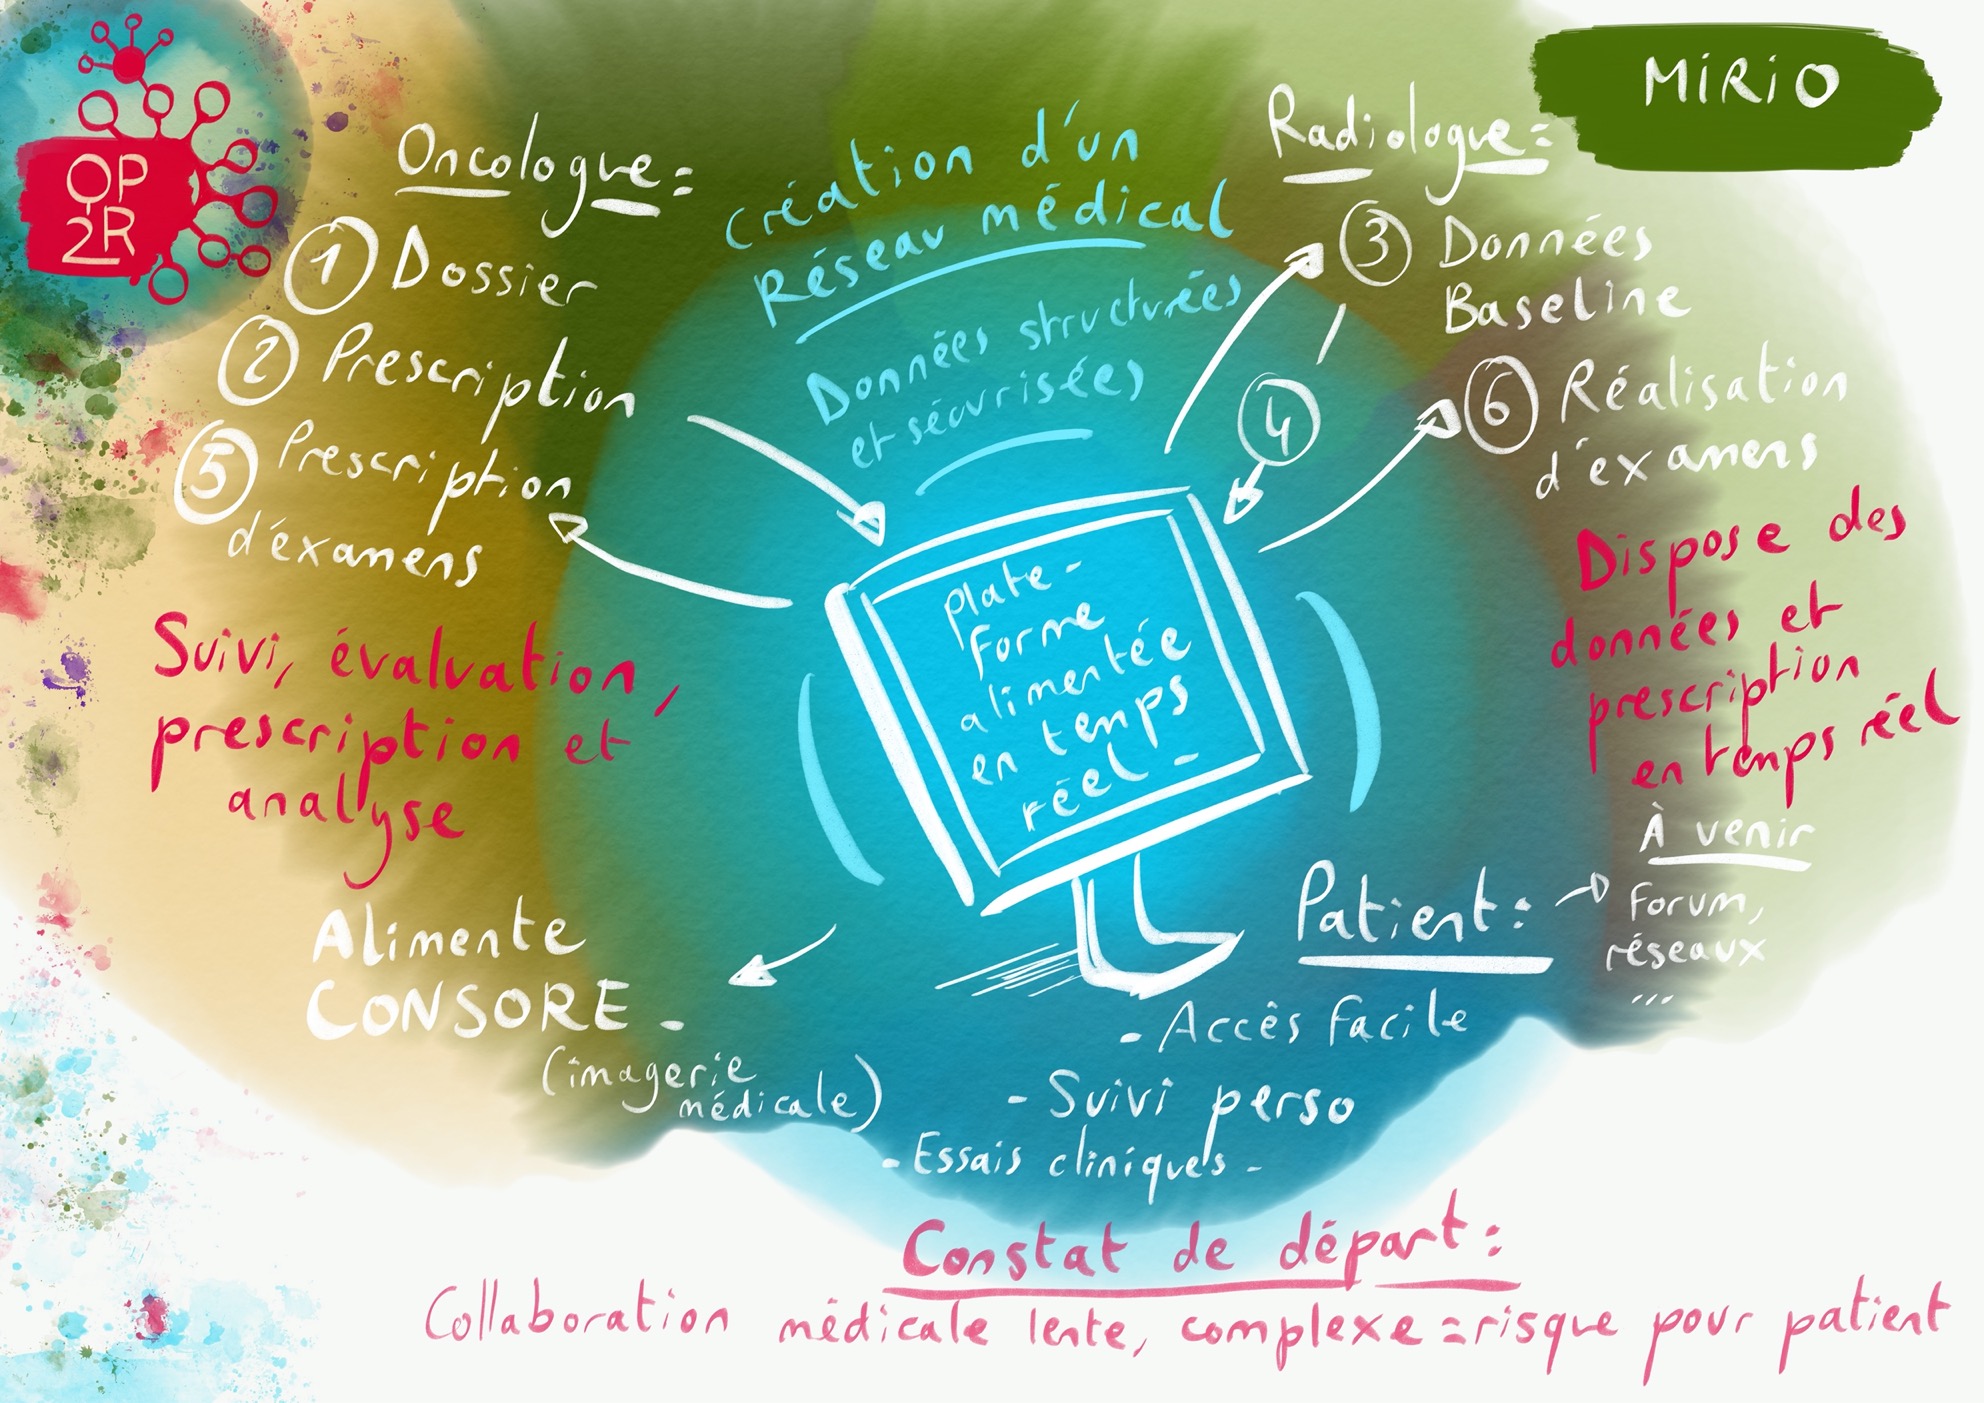 OP
2R
MiRiO
Oncologue =
① Dossier
② Prescription
⑤ Prescription
d'éxamens
Suivi, évaluation,
prescription et
analyse
Création d'un
Réseau médical
Données structurées
et sécurisées
Radiologue =
③ Données
Baseline
④
⑥ Réalisation
d'examens
Dispose des
données et
prescription
en temps réel
Plate-
Forme
alimentée
en temps
réel -
Alimente
CONSORE -
(imagerie
médicale)
Patient :
- Accès facile
- Suivi perso
- Essais cliniques -
À venir
Forum,
réseaux
...
Constat de départ :
Collaboration médicale lente, complexe = risque pour patient